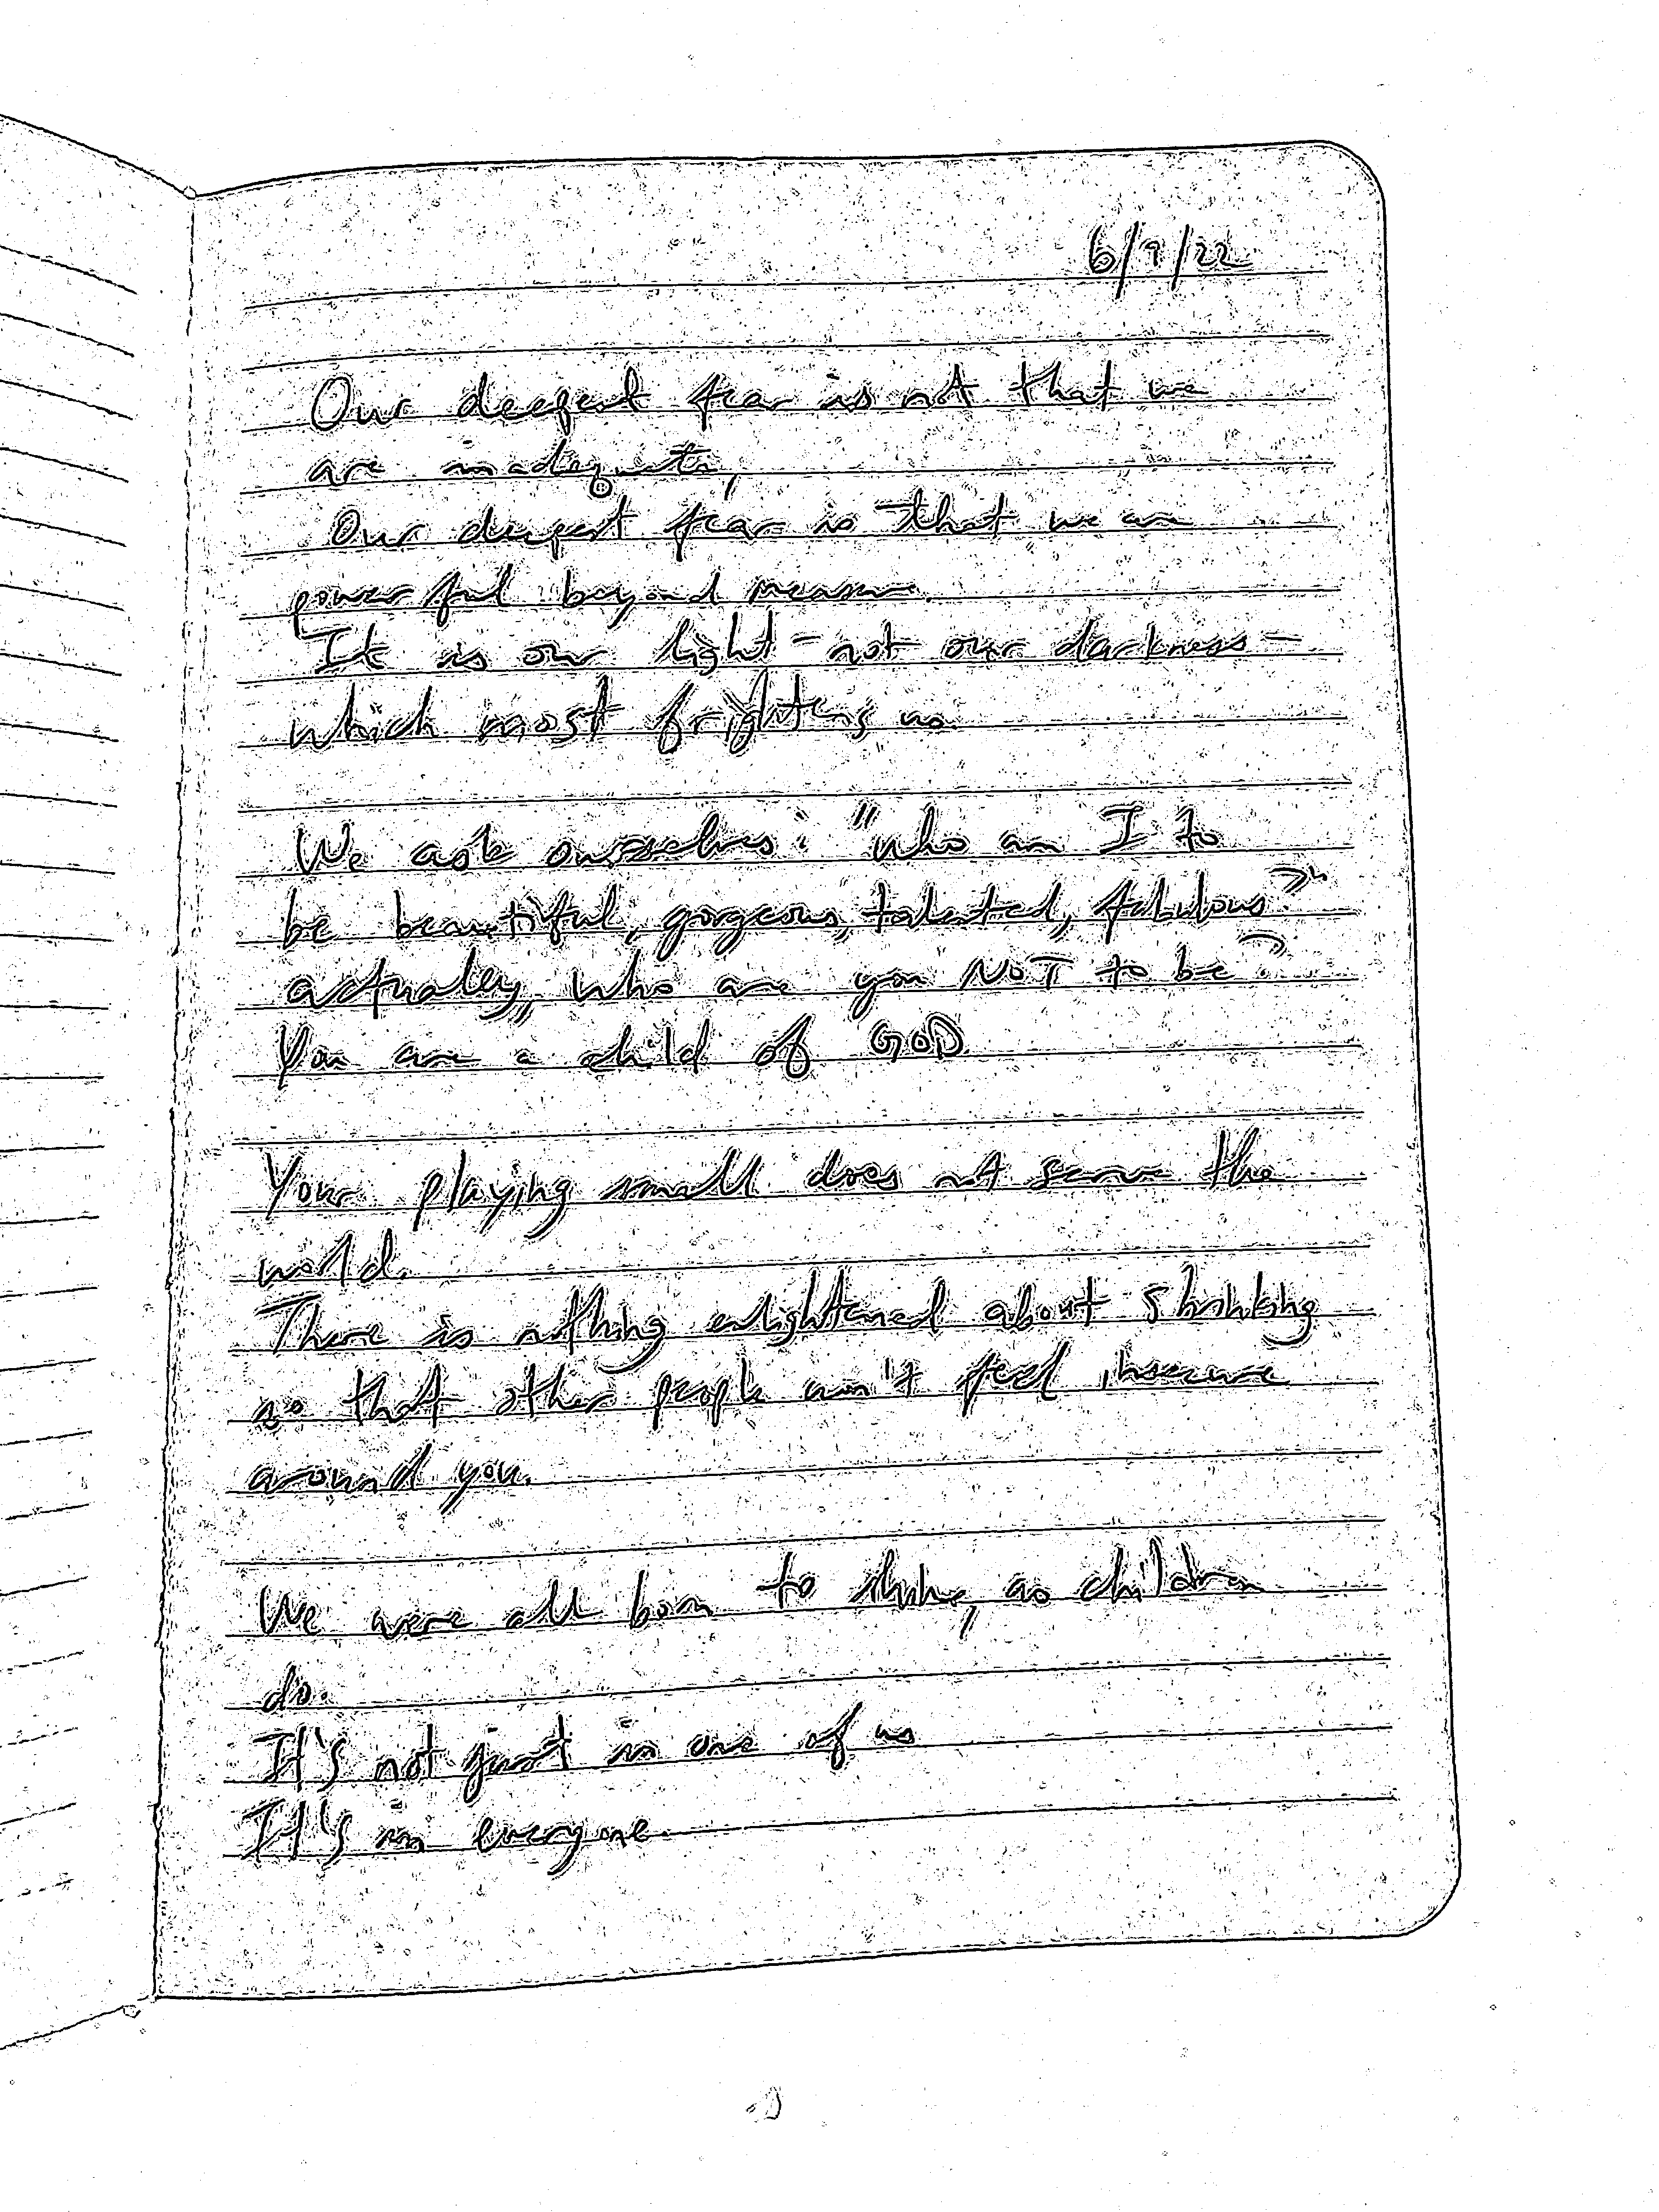 6/9/22
Our deepest fear is not that we
are inadequate,
Our deepest fear is that we are
powerful beyond measure.
It is our light - not our darkness -
which most frightens us.
We ask ourselves: "who am I to
be beautiful, gorgeous, talented, fabulous?"
actually, who are you NOT to be?
You are a child of GOD.
Your playing small does not serve the
world.
There is nothing enlightened about shrinking
so that other people won't feel insecure
around you.
We were all born to shine, as children
do.
It's not just in one of us
It's in everyone.